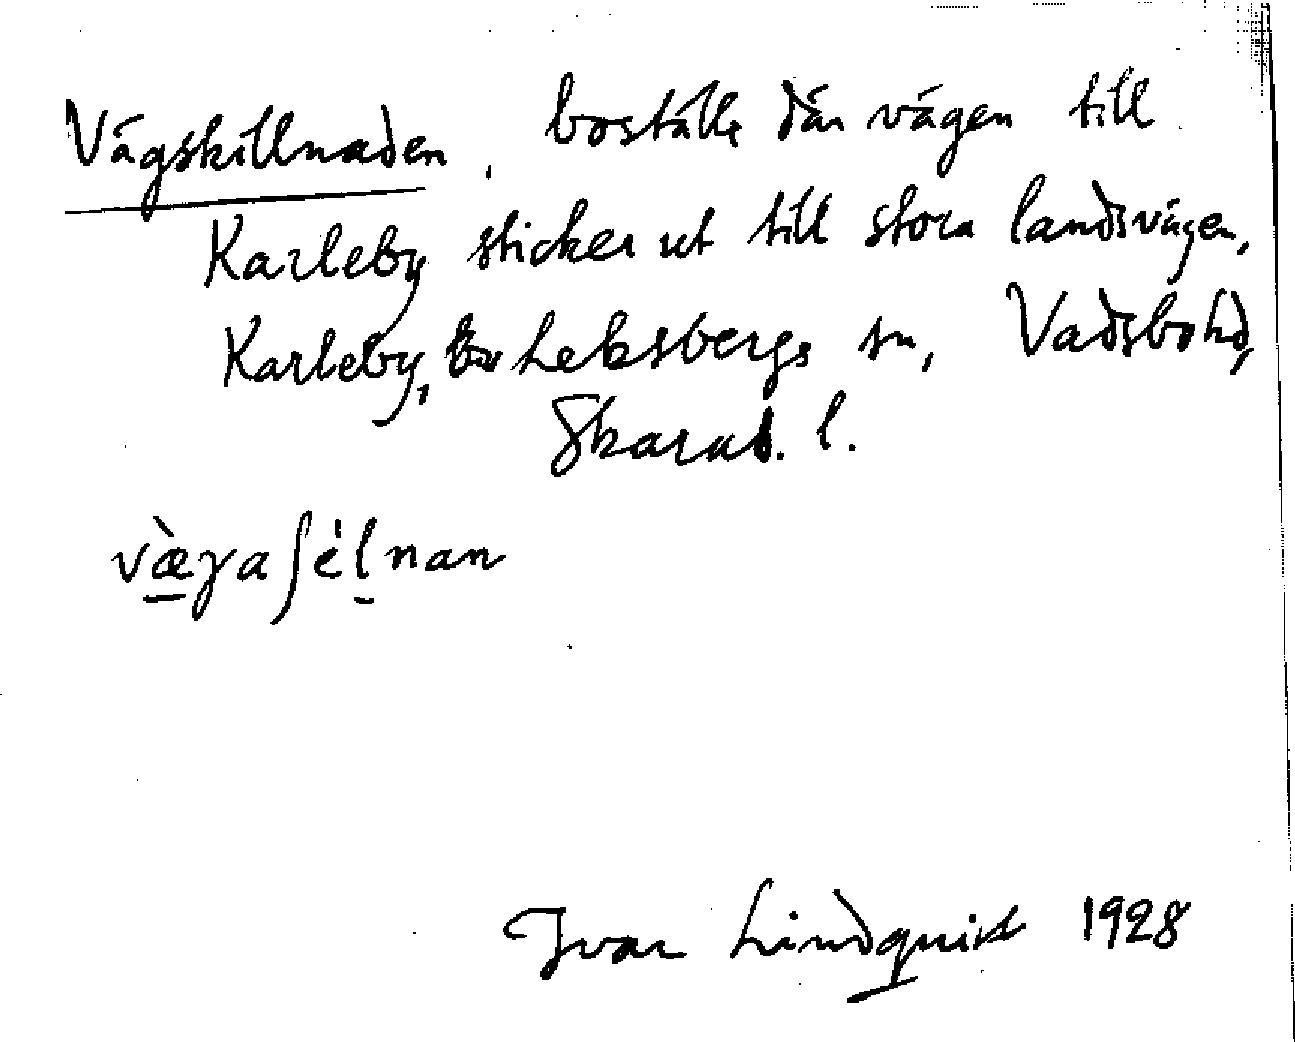 Vägskillnaden, boställe där vägen till
Karleby sticker ut till stora landsvägen,
Karleby, Leksbergs sn, Vadsbo hd,
Skarab. l.
væ̀γaʃélnan
Ivar Lindquist 1928